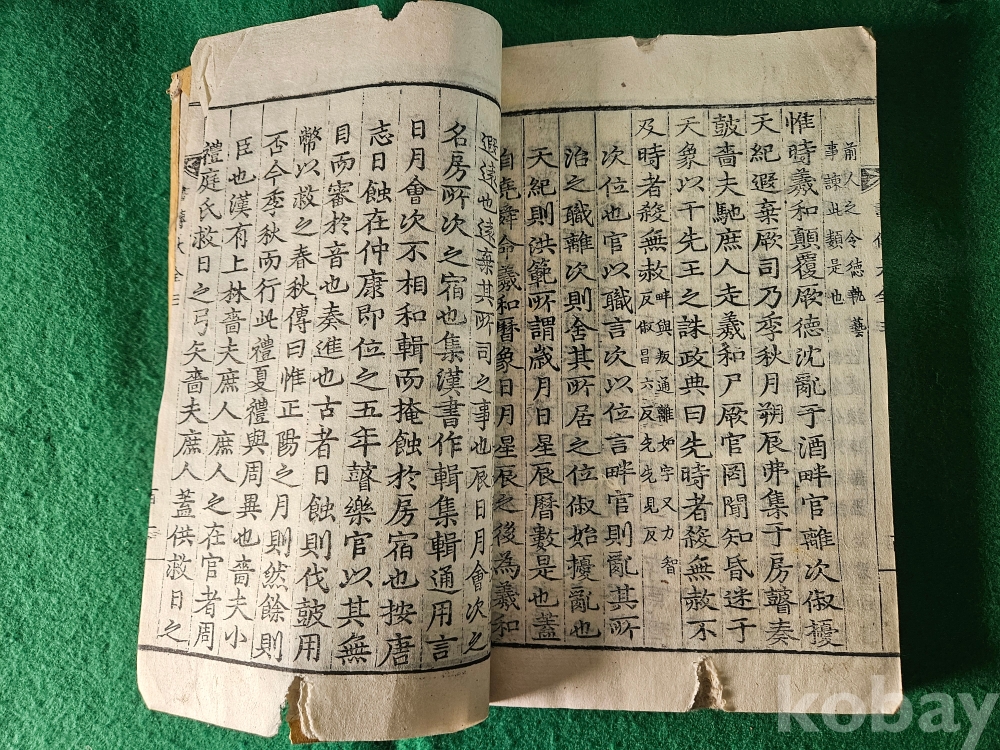 前人之令德執藝
事諫此類是也
惟時羲和顚覆厥德沈亂于酒畔官離次俶擾
天紀遐棄厥司乃季秋月朔辰弗集于房瞽奏
鼓嗇夫馳庶人走羲和尸厥官罔聞知昏迷于
天象以干先王之誅政典曰先時者殺無赦不
及時者殺無赦畔與叛通離如字又力智
反俶昌六反先先見反
次位也官以職言次以位言畔官則亂其所
治之職離次則舍其所居之位俶始擾亂也
天紀則洪範所謂歲月日星辰曆數是也蓋
自堯舜命羲和曆象日月星辰之後為羲和
遐遠也遠棄其所司之事也辰日月會次之
名房所次之宿也集漢書作輯集輯通用言
日月會次不相和輯而掩蝕於房宿也按唐
志日蝕在仲康即位之五年瞽樂官以其無
目而審於音也奏進也古者日蝕則伐鼓用
幣以救之春秋傳曰惟正陽之月則然餘則
否今季秋而行此禮夏禮與周異也嗇夫小
臣也漢有上林嗇夫庶人庶人之在官者周
禮庭氏救日之弓矢嗇夫庶人蓋供救日之
kobay